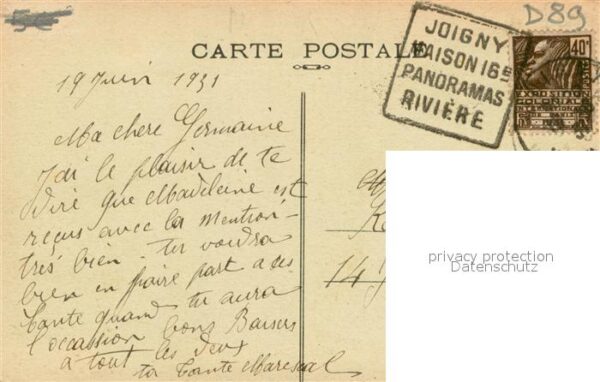 D89
CARTE POSTALE
JOIGNY
MAISON 16E
PANORAMAS
RIVIÈRE
40c
EXPOSITION
COLONIALE
INTERNATIONALE
19 Juin 1931
Ma chere Germaine
J'ai le plaisir de te
dire que Madeleine est
reçus avec la mention
très bien. tu voudra
bien en faire part a ces
tante quand tu aura
l'occassion bons Baisers
a tout les deux
ta Tante Marescal
14
privacy protection
Datenschutz